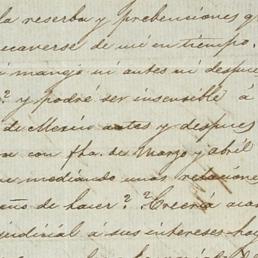 la reserba y prebenciones q
ecaverse de mi en tiempo.
manejo ni antes ni despues
? y podré ser insensible á
de Mexico antes y despues
con fha. de Marzo y abril
mediando unas relaciones
de hacer? ¿Creerá
judicial a sus intereses hoy